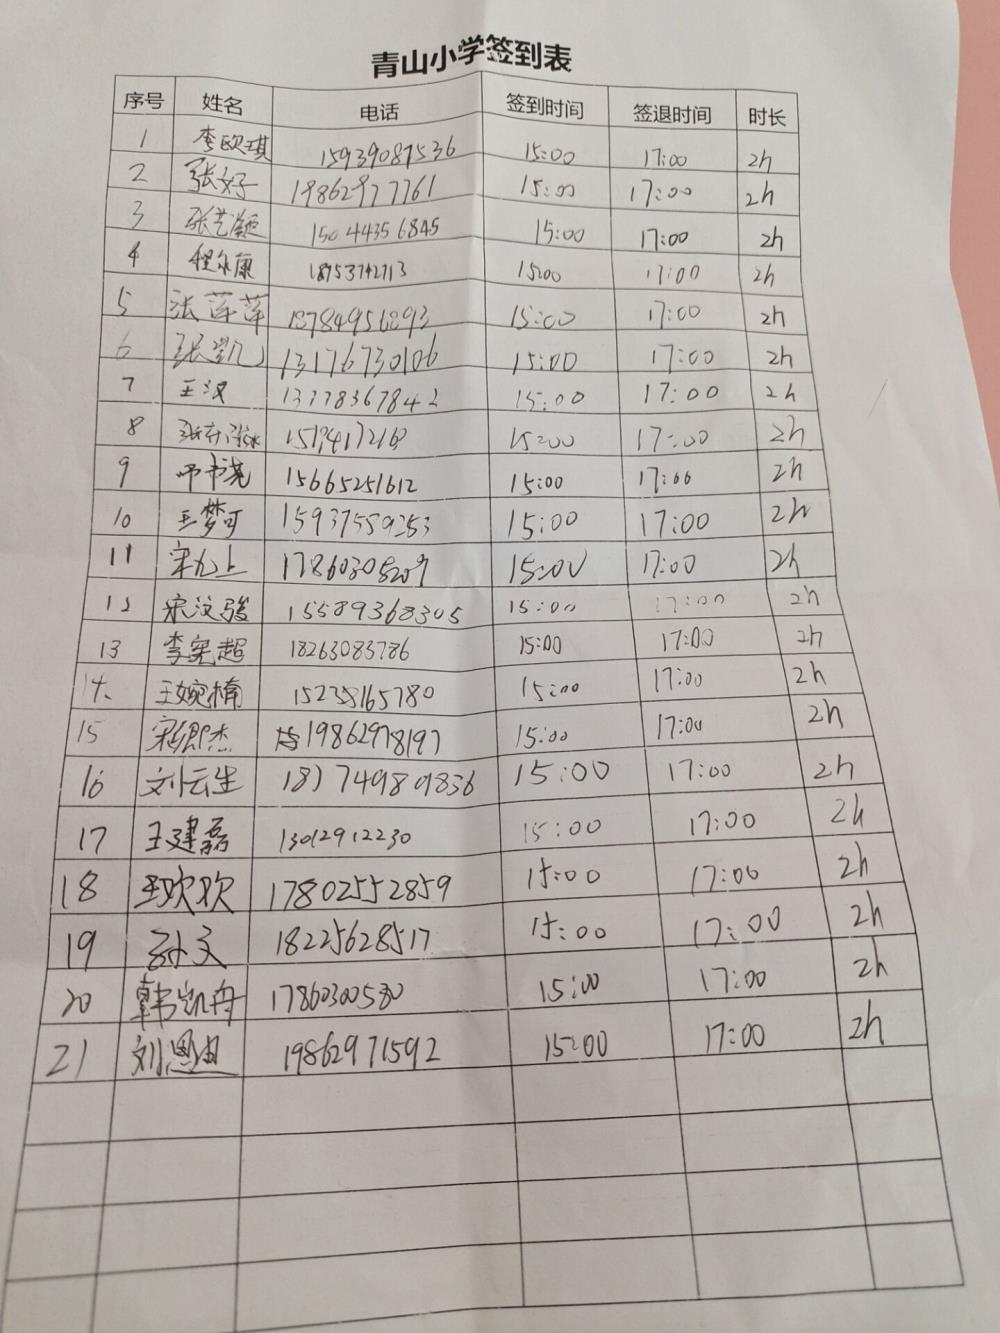 青山小学签到表
序号 姓名 电话 签到时间 签退时间 时长
1 李欧琪 15939087536 15:00 17:00 2h
2 张好 19862977761 15:00 17:00 2h
3 张艺凝 15044356845 15:00 17:00 2h
4 程尔康 15:00 17:00 2h
5 张萍萍 15:00 17:00 2h
6 张凯 13176730106 15:00 17:00 2h
7 王汉 13778367842 15:00 17:00 2h
8 15:00 17:00 2h
9 15665251612 15:00 17:00 2h
10 王梦可 15937559253 15:00 17:00 2h
11 宋九上 15:00 17:00 2h
12 宋汶骏 15589368305 15:00 17:00 2h
13 李宪超 18263083786 15:00 17:00 2h
14. 王婉楠 15238165780 15:00 17:00 2h
15 19862978197 15:00 17:00 2h
16 刘云生 15:00 17:00 2h
17 王建磊 13012912230 15:00 17:00 2h
18 王欢欢 17802552859 15:00 17:00 2h
19 孙文 18225628517 15:00 17:00 2h
20 韩凯舟 17860300580 15:00 17:00 2h
21 刘恩迪 19862971592 15:00 17:00 2h